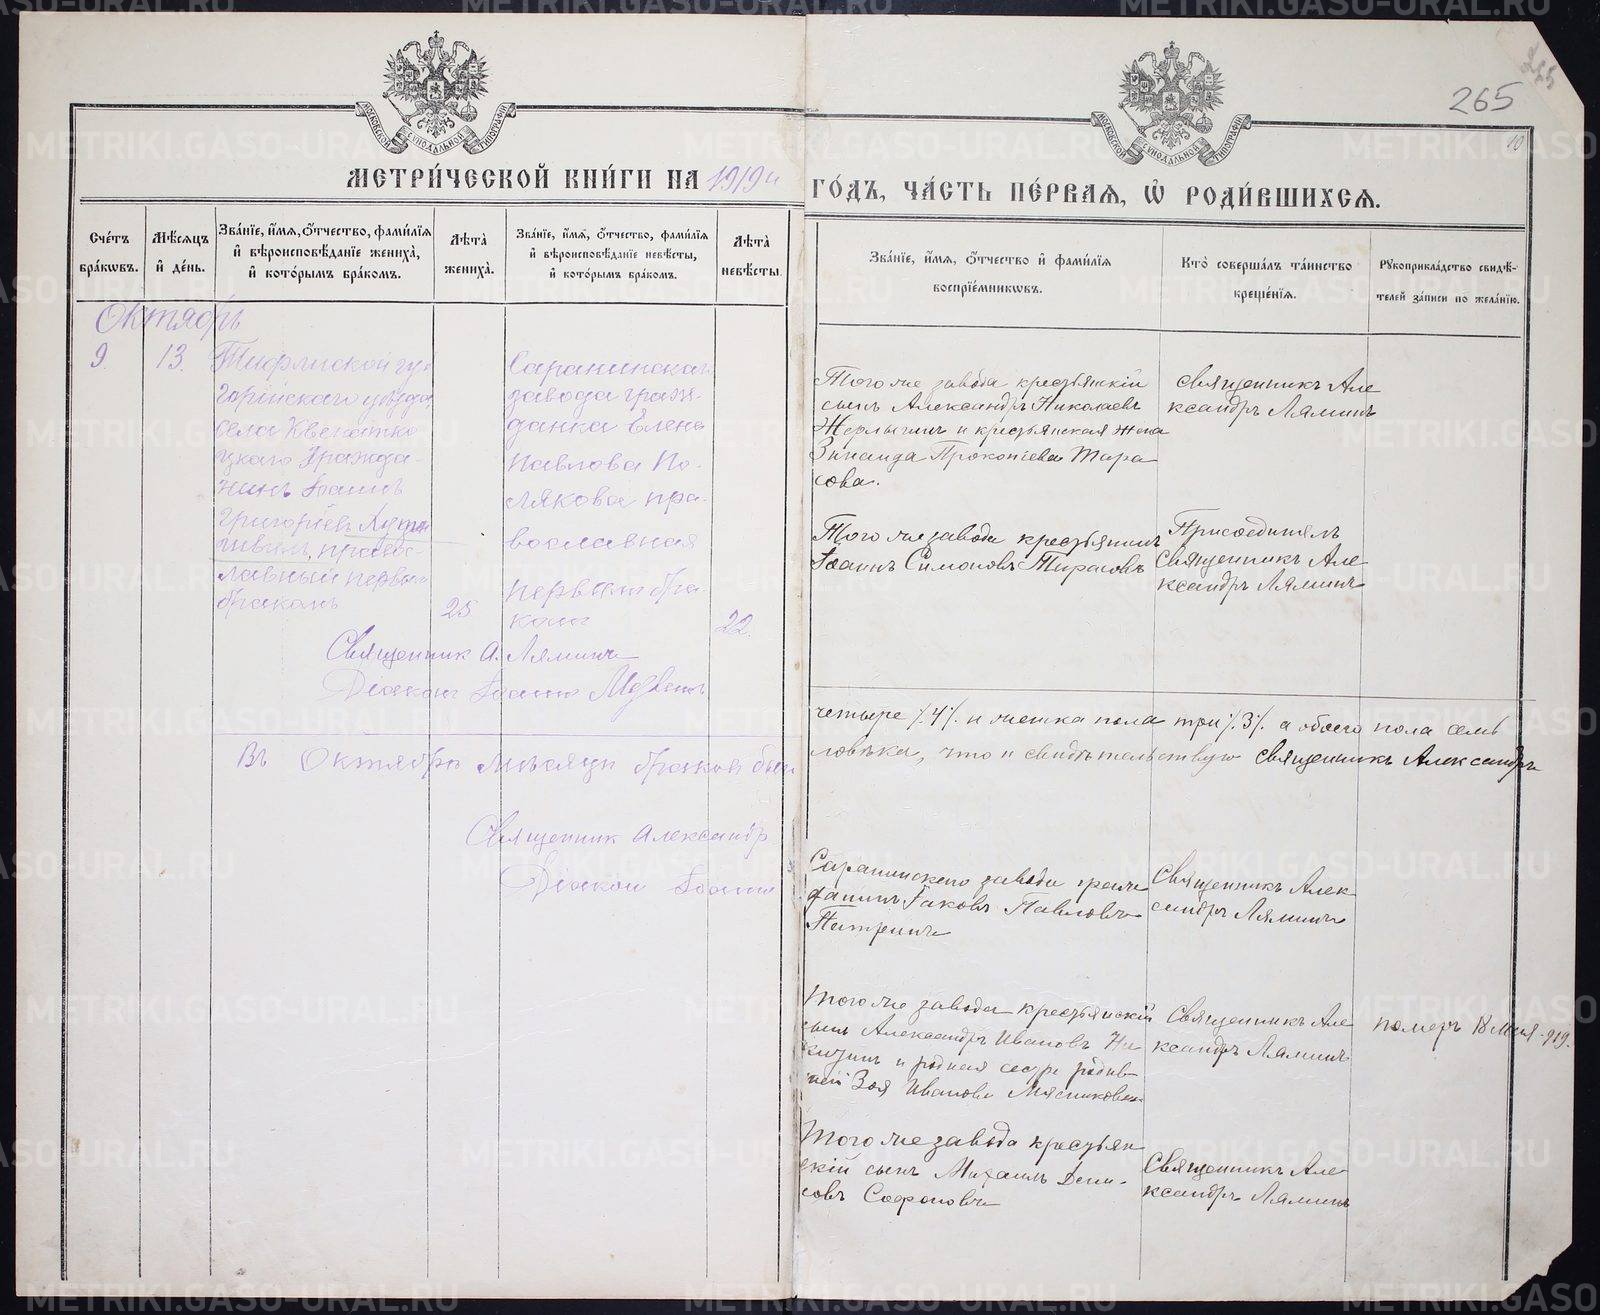 265
10
МОСКОВСКОЙ СѴНОДАЛЬНОЙ ТИПОГРАФІИ
МОСКОВСКОЙ СѴНОДАЛЬНОЙ ТИПОГРАФІИ
МЕТРИ́ЧЕСКОЙ КНИ́ГИ НА 1919
Сче́тъ бра́кѡвъ.
Мѣ́сяцъ и҆ де́нь.
Зва́нїе, и҆́мѧ, ѻ҆́тчество, фами́лїѧ
и҆ вѣроисповѣ́данїе жениха̀,
и҆ кото́рымъ бра́комъ.
Лѣта̀
жениха̀.
Зва́нїе, и҆́мѧ, ѻ҆́тчество, фами́лїѧ
и҆ вѣроисповѣ́данїе невѣ́сты,
и҆ кото́рымъ бра́комъ.
Лѣта̀
невѣ́сты.
Октябрь
9.
13.
Тифлиской гу
Горійскаго уѣзда,
села
цкаго Гражда-
нинъ Іоаннъ
Григоріевъ
православ-
лавный первым
бракомъ
25
Саранинскаго
завода граж-
данка Елена
Павлова По-
лякова пра-
вославная
первым бра-
комъ
22.
Священник А. Ляминъ
Діаконъ Іоаннъ
Въ Октябрѣ мѣсяцѣ браков был
Священник Александр
Діакон Іоанн
ГО́ДЪ, ЧА́СТЬ ПЕ́РВАѦ, Ѡ҆ РОДИ́ВШИХСѦ.
Зва́нїе, и҆́мѧ, ѻ҆́тчество и҆ фами́лїѧ
воспрїе́мникѡвъ.
Кто̀ соверша́лъ та́инство
креще́нїѧ.
Рꙋкоприкла́дство свидѣ́-
телей за́писи по жела́нїю.
Того же завода крестьянскій
сынъ Александръ Николаевъ
Жерлыгинъ и крестьянская жена
Зинаида Прокопіева Тара
сова.
Священникъ Але
ксандръ Ляминъ
Того же завода крестьянинъ
Іоаннъ Симоновъ Тарасовъ
Присоединялъ
Священникъ Але
ксандръ Ляминъ
четыре /.4/. и женска пола три /.3/. а обоего пола семь
ловѣка, что и свидѣтельствую Священникъ Александръ
Саранинскаго завода граж
данинъ Іаковъ Павловъ
Патрепинъ
Священникъ Алек
сандръ Ляминъ
Того же завода крестьянскій
сынъ Александръ Ивановъ
и родная сестра родив
шей Зоя Иванова Мясникова
Священникъ Але
ксандръ Ляминъ
померъ 18 мая-919.
Того же завода крестьян
скій сынъ Михаилъ Дени-
совъ Софоновъ
Священникъ Але
ксандръ Ляминъ
METRIKI.GASO-URAL.RU